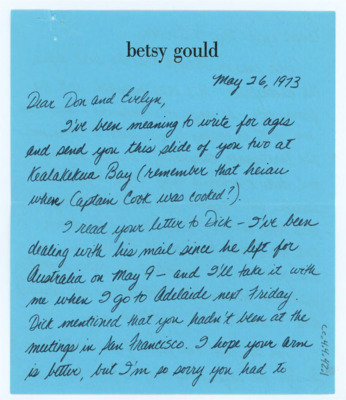 betsy gould
May 26, 1973
Dear Don and Evelyn,
I've been meaning to write for ages
and send you this slide of you two at
Kealakekua Bay (remember that heiau
when Captain Cook was cooked?).
I read your letter to Dick - I've been
dealing with his mail since he left for
Australia on May 9 - and I'll take it with
me when I go to Adelaide next Friday.
Dick mentioned that you hadn't been at the
meetings in San Francisco. I hope your arm
is better, but I'm so sorry you had to